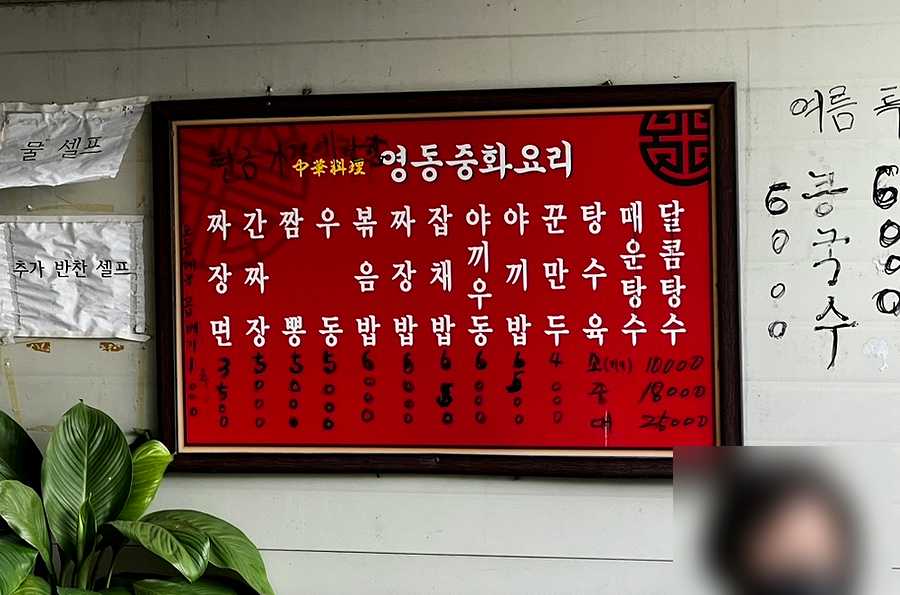 물 셀프
추가 반찬 셀프
현금
中華料理 영동중화요리
짜장면 3500
간짜장 5000
짬뽕 5000
우동 5000
볶음밥 6000
짜장밥 6000
잡채밥
야끼우동 6000
야끼밥
꾼만두 4000
탕수육
매운탕수
달콤탕수
소 10000
중 18000
대 25000
여름
콩국수
6000